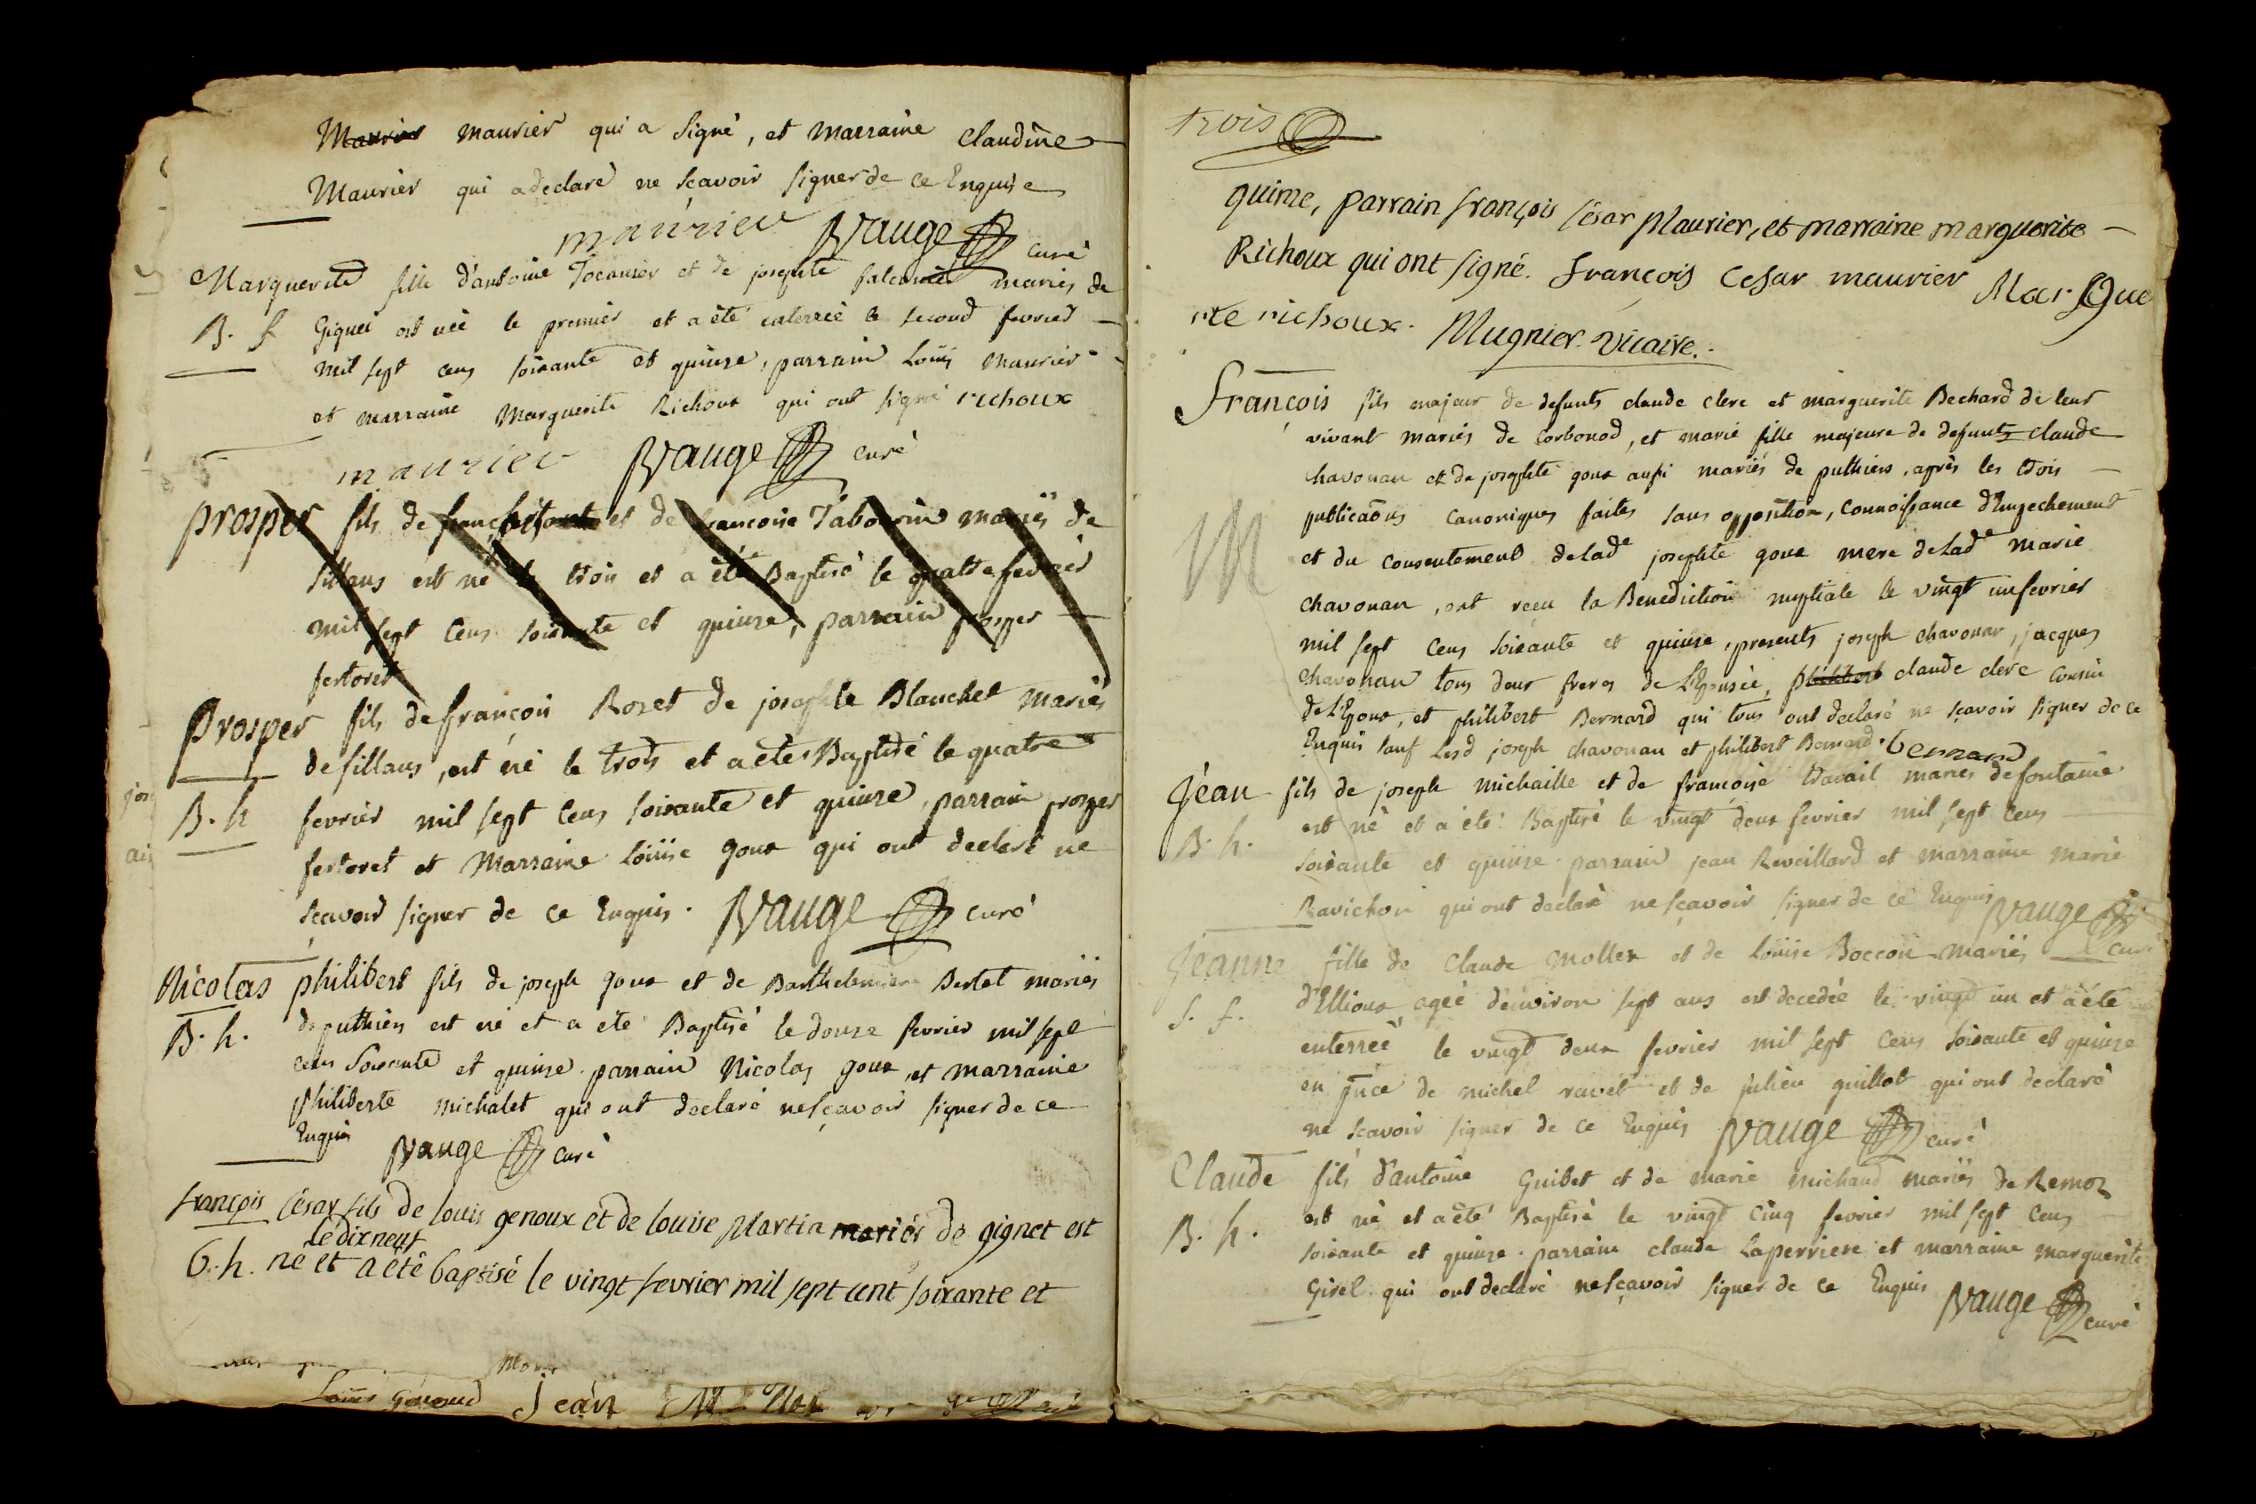 Maurier maurier qui a signé, et marraine Claudine
Maurier qui a declaré ne scavoir signer de ce Enquise
maurier Vauge curé
Marguerite fille d'antoine Jocanier et de josephte mariés de
B. f. Gignez est née le premier et a été enterrée le second fevrier
mil sept cens soixante et quinze, parrain Loüis Maurier
et marraine Marguerite Richoux qui ont signé richoux
maurier Vauge curé
prosper fils de et de francoise Tabourin mariés de
sillans est né le trois et a été Baptisé le quatre fevrier
mil sept cens soixante et quinze, parrain prosper
fertoret
Prosper fils de françois Roset de josephte Blanchet mariés
de sillans, est né le trois et a eté Baptisé le quatre
B. h. fevrier mil sept cens soixante et quinze, parrain prosper
fertoret et Marraine Loüise goux qui ont declaré ne
scavoir signer de ce Enquis. Vauge curé
Nicolas philibert fils de joseph goux et de Barthelemiere Bertet mariés
B. h. de puthiers est né et a eté Baptisé le douze fevrier mil sept
cens Soixante et quinze. parrain Nicolas goux, et marraine
philiberte michalet qui ont declaré ne sçavoir signer de ce
Enquis Vauge curé
françois César fils de louis genoux et de louise Martin mariés de gignet est
le dix neuf
b. h. né et a été baptisé le vingt fevrier mil sept cent soixante et
Loüis genoud Jean
trois
quinze, parrain françois César Maurier, et marraine marguerite
Richoux qui ont signé. françois Cesar maurier Margue
rite richoux. Mugnier. vicaire.
François fils majeur de defunts claude clerc et marguerite Bechard de leur
vivant mariés de Corbonod, et marie fille majeure de defunts claude
chavonan et de josephte goux aussi mariés de puthiers, après les trois
publicaõns canoniques faites sans opposition, connoissance d'Empechement
M et du consentement de lad.e josephte goux mere de lad.e marie
chavonan, ont reçu la Benediction nuptiale le vingt un fevrier
mil sept cens soixante et quinze, presents joseph chavonan, jacques
chavonan tous deux freres de L'Epousée, philibert claude clerc cousin
de L'Epoux, et philibert Bernard qui tous ont declaré ne sçavoir signer de ce
Enquis sauf Lesd joseph chavonan et philibert Bernard. bernard
Jean fils de joseph michaille et de françoise travail mariés de fontaine
B. h. est né et a été Baptisé le vingt deux fevrier mil sept cens
soixante et quinze. parrain jean Reveillard et marraine marie
Ravichon qui ont declaré ne sçavoir signer de ce Enquis Vauge
curé
Jeanne fille de Claude mollex et de Loüise Boccon mariés
S. f. d'Ellioux, ageé d'environ sept ans est decedée le vingt un et a été
enterreé le vingt deux fevrier mil sept cens soixante et quinze
en pñce de michel ravet et de julien guillot qui ont declaré
ne scavoir signer de ce Enquis Vauge curé
Claude fils d'antoine Guibet et de marie michaud mariés de Remoz
B. h. est né et a été Baptisé le vingt cinq fevrier mil sept cens
soixante et quinze. parrain claude Laperriere et marraine marguerite
Girel qui ont declaré ne sçavoir signer de ce Enquis Vauge curé